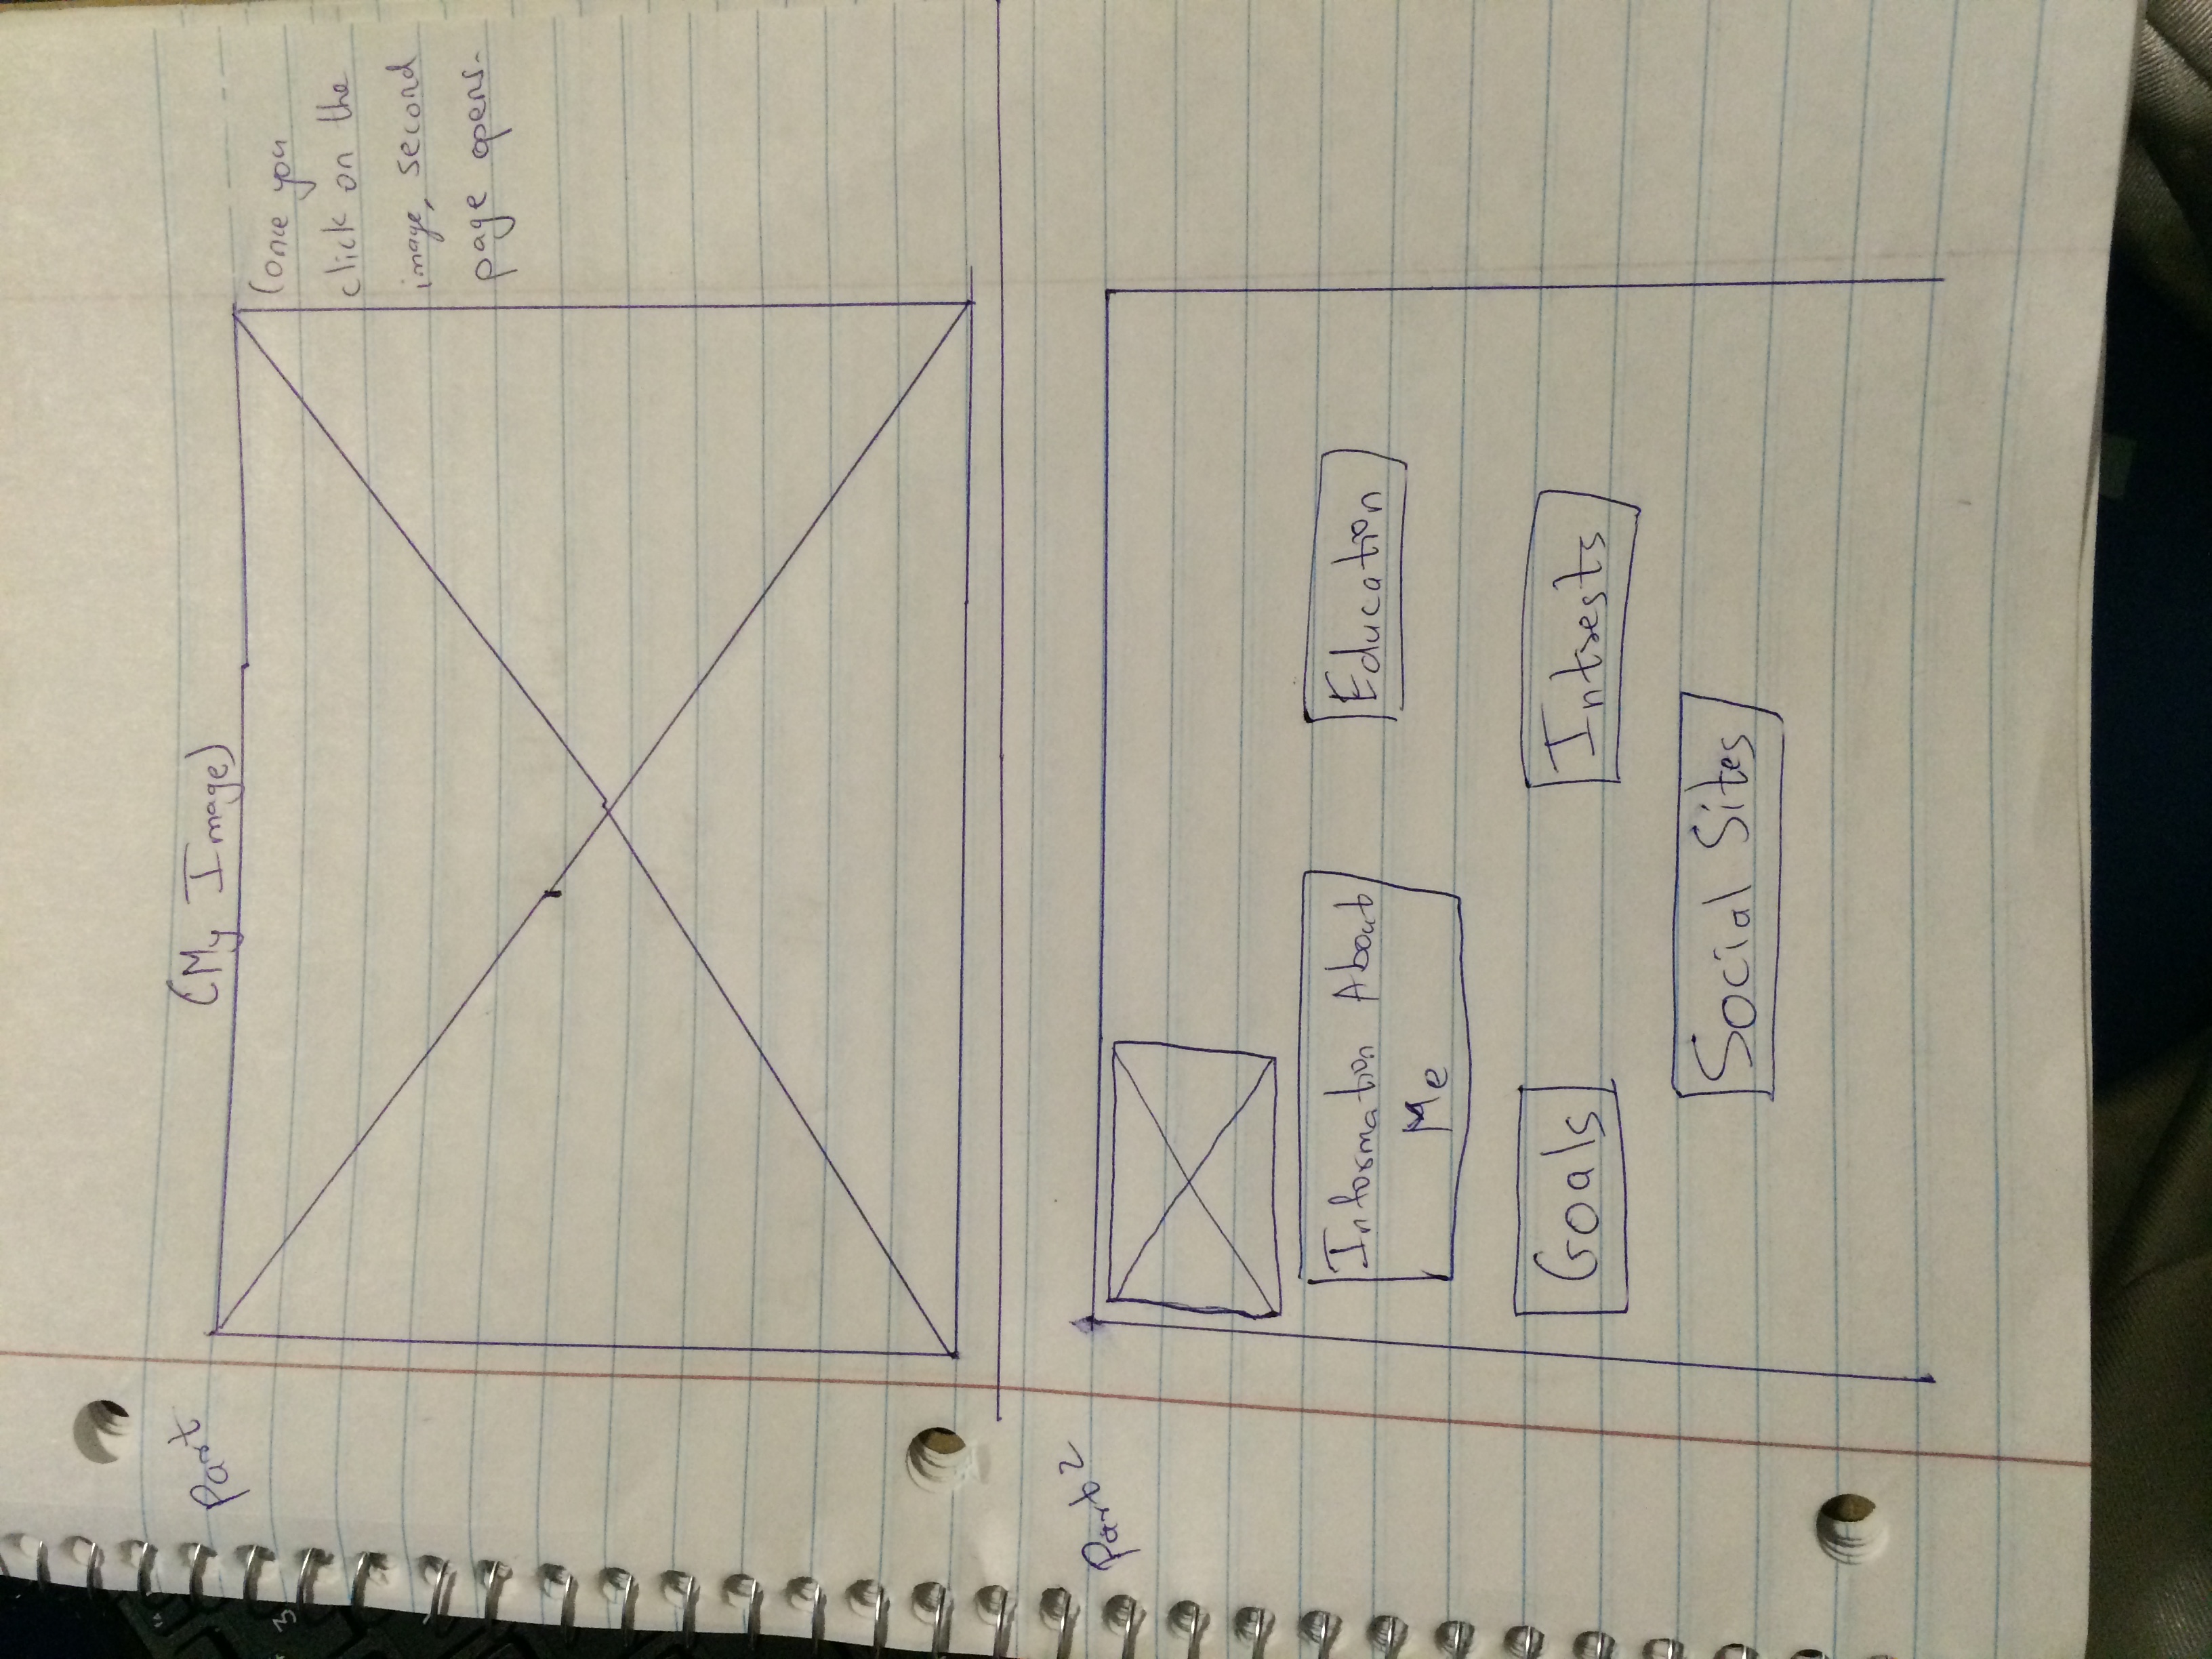 Part
(My Image)
(once you
click on the
image, second
page opens.
Part 2
Information About
Me
Education
Goals
Intrests
Social Sites
3